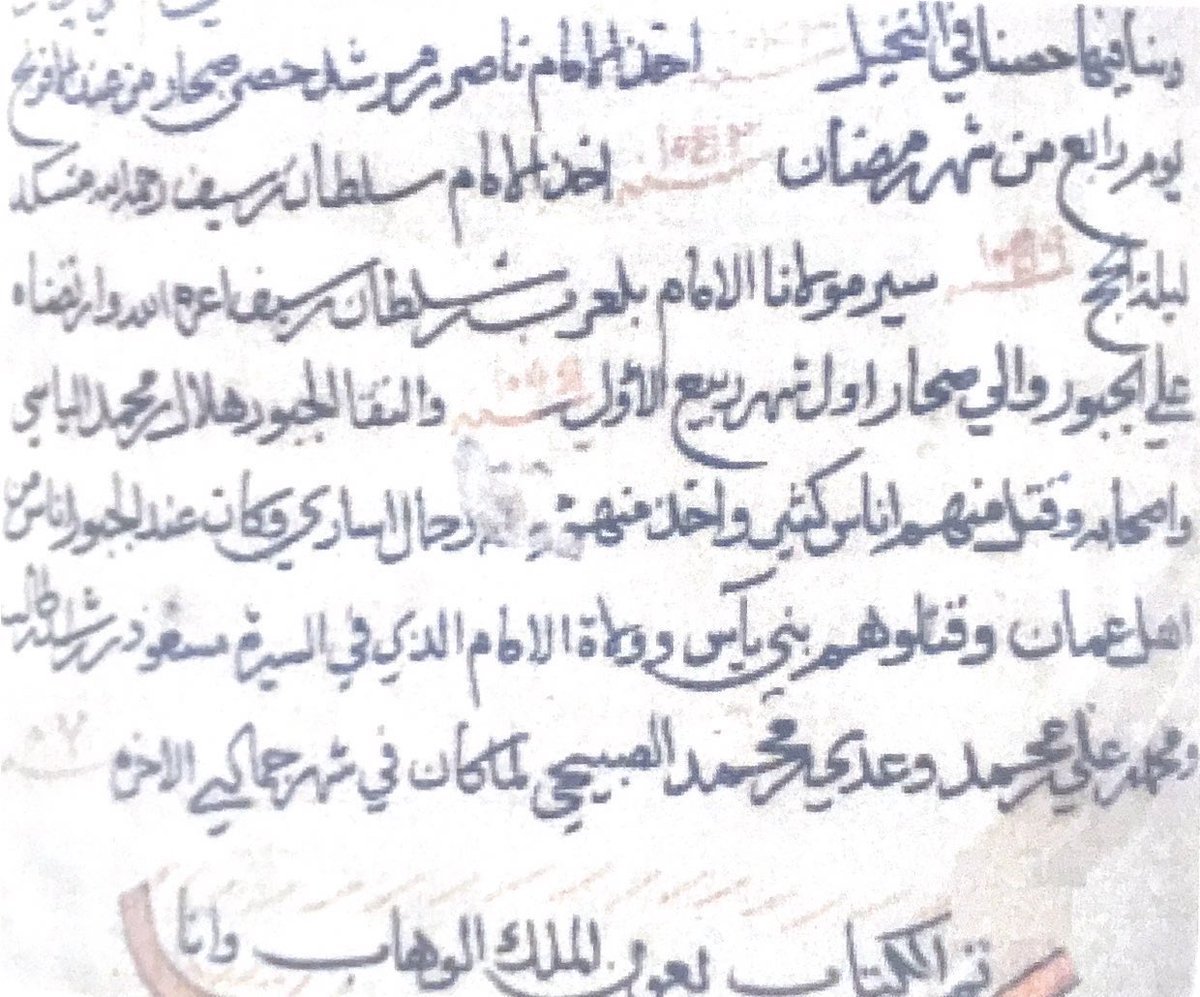 وبنا فيها حصنا في النخيل اخذ الامام ناصر بن مرشد حصن صحار من عند الافرنج
يوم رابع من شهر رمضان سنه ١٠٤٣ اخذ الامام سلطان بن سيف رحمه الله مسكد
ليلة الحج سنه ١٠٥٩ سير مولانا الامام بلعرب بن سلطان بن سيف اعزه الله وارتضاه
علي الجبور والي صحار اول شهر ربيع الاول سنه والتقا الجبور هلال بن محمد
واصحابه وقتل منهم اناس كثير واخذ منهم رجال اساري وكان عند الجبور اناس من
اهل عمان وقتلوهم بني ياس وولاة الامام الذي في السيره مسعود بن راشد
ومحمد بن علي بن محمد وعدي بن محمد الصبيحي لما كان في شهر جمادي الاخره
تم الكتاب بعون الملك الوهاب وانا